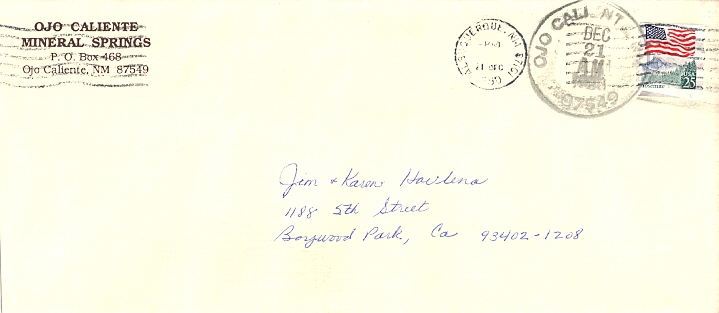 OJO CALIENTE
MINERAL SPRINGS
P. O. Box 468
Ojo Caliente, NM 87549
ALBUQUERQUE, NM
PM
21 DEC
OJO CALIENT
DEC
21
AM
USA
25
Jim + Karen
1188 5th Street
Baywood Park, Ca 93402-1208